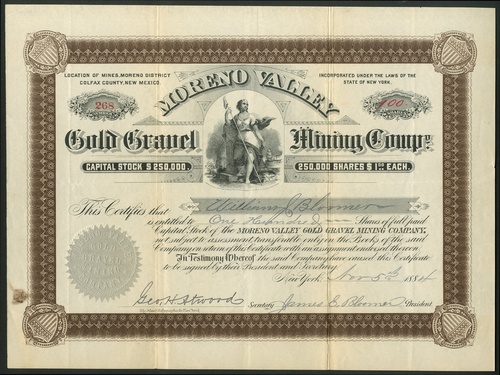 LOCATION OF MINES, MORENO DISTRICT
COLFAX COUNTY, NEW MEXICO.
INCORPORATED UNDER THE LAWS OF THE
STATE OF NEW YORK.
268
MORENO VALLEY
100
Gold Gravel Mining Compy.
CAPITAL STOCK $250,000.
250,000 SHARES $1.00 EACH.
This Certifies that Watkins J. Bloomer
is entitled to One Hundred Shares of full paid
Capital Stock of the MORENO VALLEY GOLD GRAVEL MINING COMPANY,
not subject to assessment, transferable only on the Books of the said
Company on return of this Certificate with an assignment indorsed thereon.
In Testimony Whereof the said Company have caused this Certificate
to be signed by their President and Secretary
New York, Nov 5th 1884
Geo. H. Atwood Secretary James E. Bloomer President.